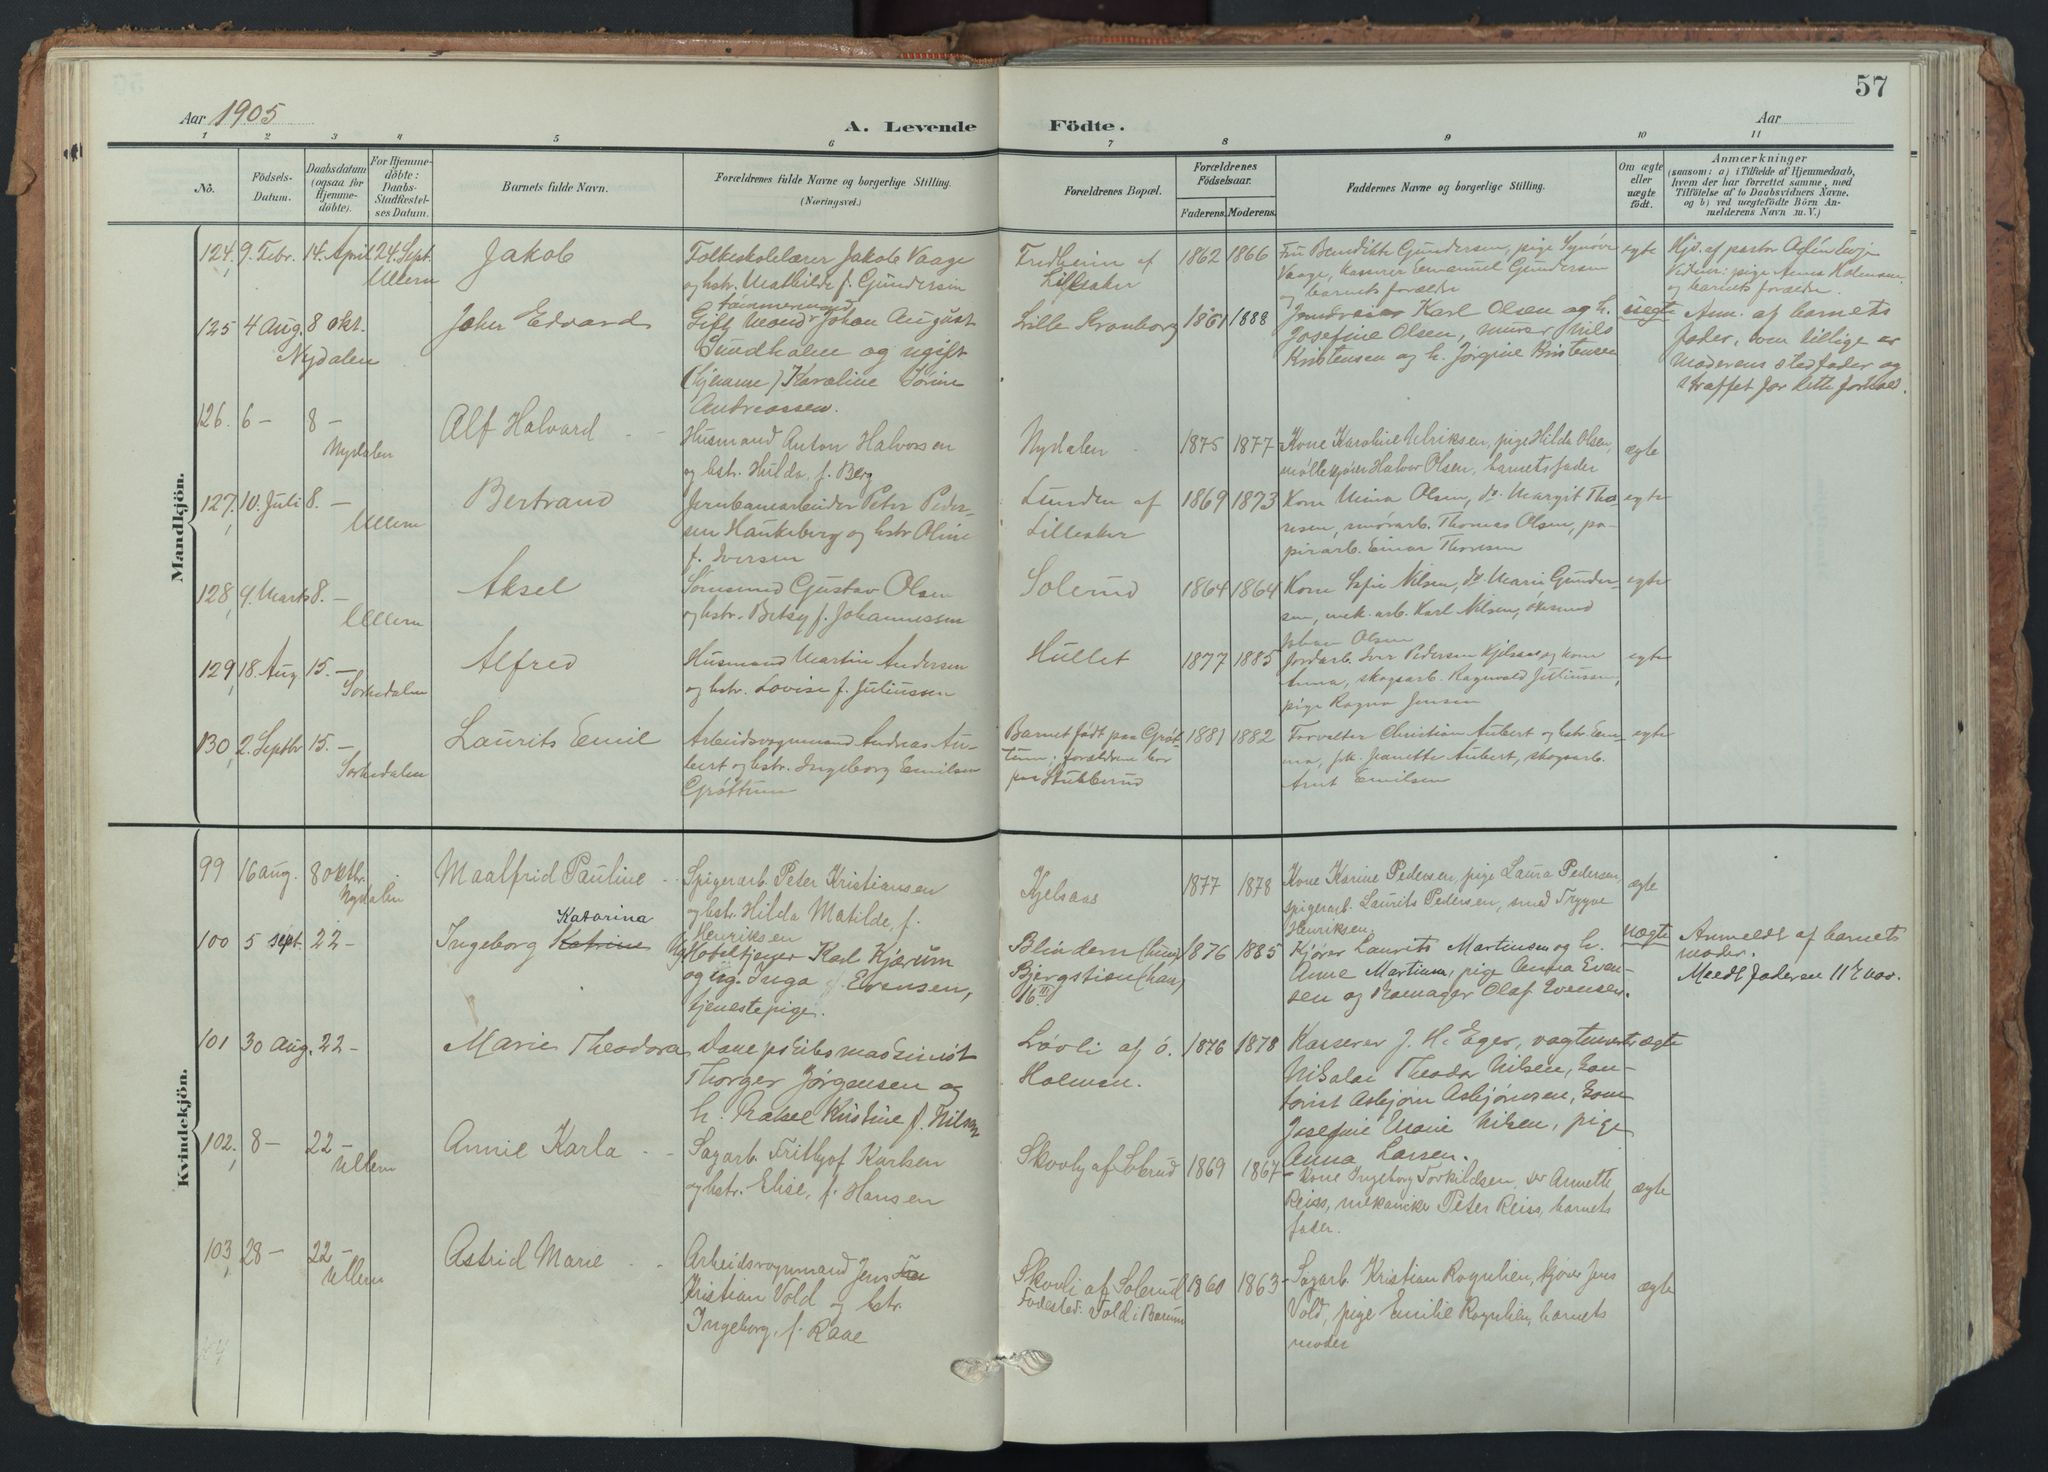 57
Aar 1905
A. Levende Födte.
Aar
1 2 3 4 5 6 7 8 9 10 11
No.
Födsels-Datum.
Daabsdatum (ogsaa for Hjemmedöbte).
For Hjemmedöbte: Daabs-Stadfæstelses Datum.
Barnets fulde Navn.
Forældrenes fulde Navne og borgerlige Stilling.
(Næringsvei.)
Forældrenes Bopæl.
Forældrenes Födselsaar.
Faderens. Moderens.
Faddernes Navne og borgerlige Stilling.
Om ægte eller uægte födt.
Anmærkninger
(saasom: a) i Tilfælde af Hjemmedaab, hvem der har forrettet samme, med Tilföielse af to Daabsvidners Navne, og b) ved uægtefödte Börn Anmelderens Navn m. V.)
Mandkjön.
124, 9. Febr. 14. April 24. Sept. Ullern
Jakob
Folkeskolelærer Jakob Vaage
og hstr. Mathilde f. Gundersen
Fredheim af
Lilleaker
1862 1866
Fru Bendikte Gundersen, pige Synöve
Vaage, kasserer Emanuel Gundersen
og barnets forældre
egte
Hjd. af pastor
Vidner: pige Anna
og barnets forældre.
125 4 Aug. 8 okt. Nydalen
Johan Edvard
tömmermand
Gift Mand Johan August
Sundholm og ugift
(hjemme) Karoline
Andreassen.
Lille Kronborg
1861 1888
Karl Olsen og h.
Josefine Olsen, murer Nils
Kristensen og h. Jörgine Kristensen
uegte
Anm. af barnets
fader, som tillige er
moderens stedfader og
straffet for dette forhold.
126. 6 - 8 - Nydalen
Alf Halvard
Husmand Anton Halvorsen
og hstr. Hulda, f. Berg
Nydalen
1875 1877
Kone Karoline Ulriksen, pige Hilda Olsen,
Halvor Olsen, barnets fader
ægte
127, 10. Juli 8. - Ullern
Bertrand
Jernbanearbeider Peter Peder-
sen Haukeberg og hstr Oline
f. Iversen
Lunden af
Lilleaker
1869 1873
Kone Mina Olsen, do. Margit Tho-
resen, smörarb. Thomas Olsen, pa-
pirarb. Einar Thoresen
egte
128, 9. Marts 8. - Ullern
Aksel
Gustav Olsen
og hstr. Betsy f. Johannessen
Solerud
1864 1864
Kone Nilsen, do. Marie Gunder-
sen, mek. arb. Karl Nilsen,
Johan Olsen
egte
129, 18. Aug 15. - Sorkedalen
Alfred
Husmand Martin Andersen
og hstr. Lovise f. Juliussen
Hullet
1877 1885
Jordarb. Iver Pedersen Kjelsaas og kone
Anna, skogsarb. Ragnvald Juliussen,
pige Ragna Jensen
egte
130, 2. Septbr 15. - Sorkedalen
Laurits Emil
Arbeidsvognmand Andreas Au-
bert og hstr. Ingeborg Emilsen
Gröttum
Barnet födt paa Gröt-
tum; forældrene bor
paa Stubberud
1881 1882
Forvalter Christian Aubert og hstr. Em-
ma, frk. Jeanette Aubert, skogsarb.
Arnt Emilsen
egte
Kvindekjön.
99 16 aug. 8 oktbr. Nydalen
Maalfrid Pauline
Spigerarb. Peter Kristiansen
og hstr. Hilda Matilde, f.
Henriksen
Kjelsaas
1877 1878
Kone Karine Pedersen, pige Laura Pedersen,
spigerarb. Laurits Pedersen, smed Trygve
Henriksen
ægte
100 5 sept. 22 -
Katarina
Ingeborg Katrine
Ug. Hoteltjener Karl Kjærum
og ug. Inga Evensen,
tjenestepige.
Blindern (hun)
Bjergstien (han)
16 III
1876 1885
Kjörer Laurits Martinsen og h.
Anne Martinsen, pige Anna Even-
sen og Olaf Evensen.
uægte
Anmeldt af barnets
moder.
Meedt faderen 11/2 00.
101 30 Aug. 22 -
Marie Theodora
Dampskibsmaskinist
Thorger Jörgensen og
h. Kristine f. Nilsen
Lövli af ö.
Holmen.
1876 1878
Kasserer J. H. Eger, vagtmester
Nikolai Theodor Nilsen, kon-
torist Asbjörn Asbjörnsen, kone
Josefine Marie Nilsen, pige
Anna Larsen.
ægte
102, 8 - 22 - Ullern
Annie Karla
Sagarb. Frithjof Karlsen
og hstr. Elise, f. Hansen
Skovly af Solerud
1869 1867
Kone Ingeborg Torkildsen, do Annette
Reiss, mekaniker Peter Reiss, barnets
fader.
ægte
103, 28 - 22 - Ullern
Astrid Marie
Arbeidsvognmand Jens
Kristian Vold og hstr.
Ingeborg, f. Raae
Skovli af Solerud
Födested: Vold i Bærum
1860 1863
Sagarb. Kristian Rognlien, kjörer Jens
Vold, pige Emilie Rognlien, barnets
moder
ægte